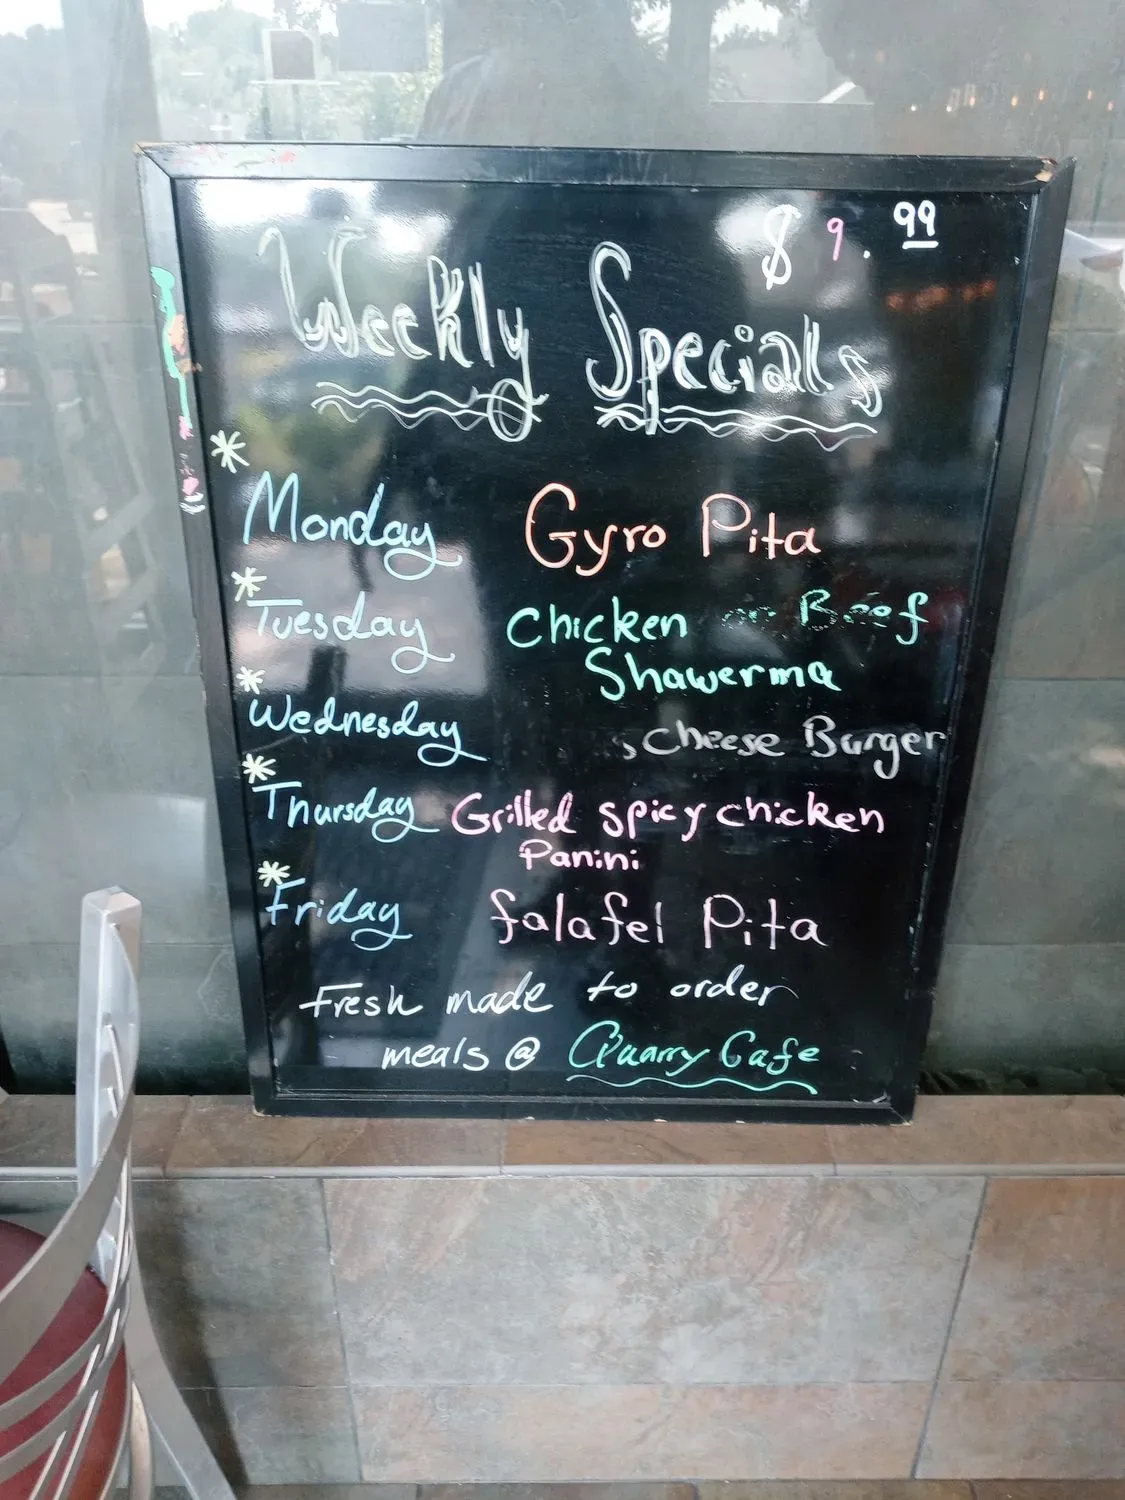 $9.99
Weekly Specials
* Monday Gyro Pita
* Tuesday Chicken or Beef
Shawerma
* Wednesday Cheese Burger
* Thursday Grilled spicy chicken
Panini
* Friday falafel Pita
Fresh made to order
meals @ Quarry Cafe